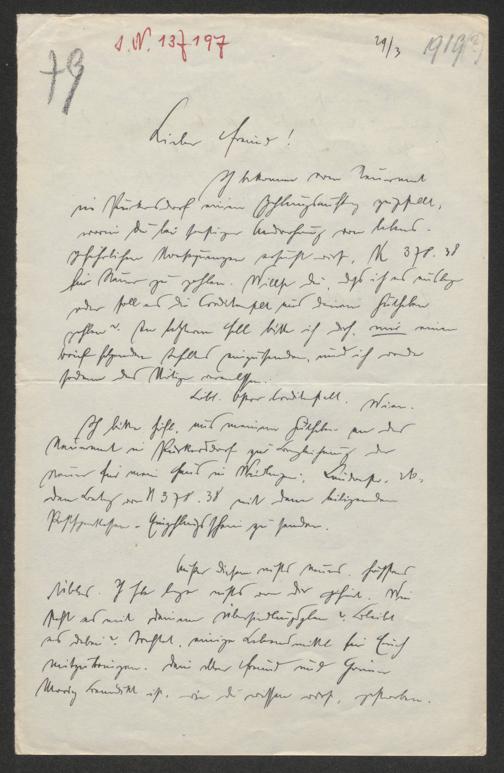 I. N. 137197
29/3 1919(?)
79
Lieber Freund!
Ich bekomme vom Steueramt
in Purkersdorf einen Zahlungsauftrag zugestellt,
worin Du bei sonstiger Androhung von lebens-
gefährlichen ersucht wirst, K 378.38
für Steuer zu zahlen. Willst Du, daß ich es
oder soll es die Creditanstalt aus Deinem Guthaben
zahlen? Im letzteren Fall bitte ich Dich, mir einen
Brief folgenden Inhaltes einzusenden, und ich werde
sodann das Nötige veranlassen.
Löbl. Österr Creditanstalt. Wien.
Ich bitte höfl, aus meinem Guthaben an das
Steueramt in Purkersdorf zur Begleichung der
Steuer für mein Haus in Weidlingau,
den Betrag von K 378.38 mit dem beiliegenden
Postsparkassen-Empfangsschein zu senden.
Außer diesem nichts neues, höchstens
Übles. Ich habe lange nichts von Dir gehört. Wie
steht es mit Deinem Übersiedlungsplan? Bleibt
es dabei? Trachtet, einige Lebensmittel für Euch
mitzubringen. Dein alter Freund und Gönner
Moriz Benedikt ist, wie Du wissen wirst, gestorben.